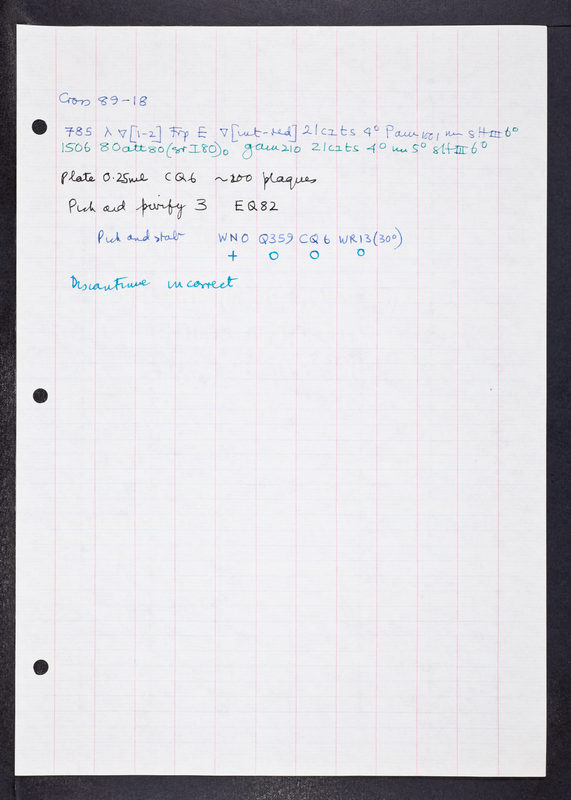 Cross 89-18
785 λ ∇[1-2] Trp E ∇[int-red] 21cIts 4° Pam 1501 nin sHIII6°
1506 80att80(srI80)° gam210 21cIts 4° nin 5° sHIII6°
Plate 0.25ml CQ6 ~200 plaques
Pick and purify 3 EQ82
Pick and stab WNO Q359 CQ6 WR13(30°)
+ O O O
Discontinue incorrect